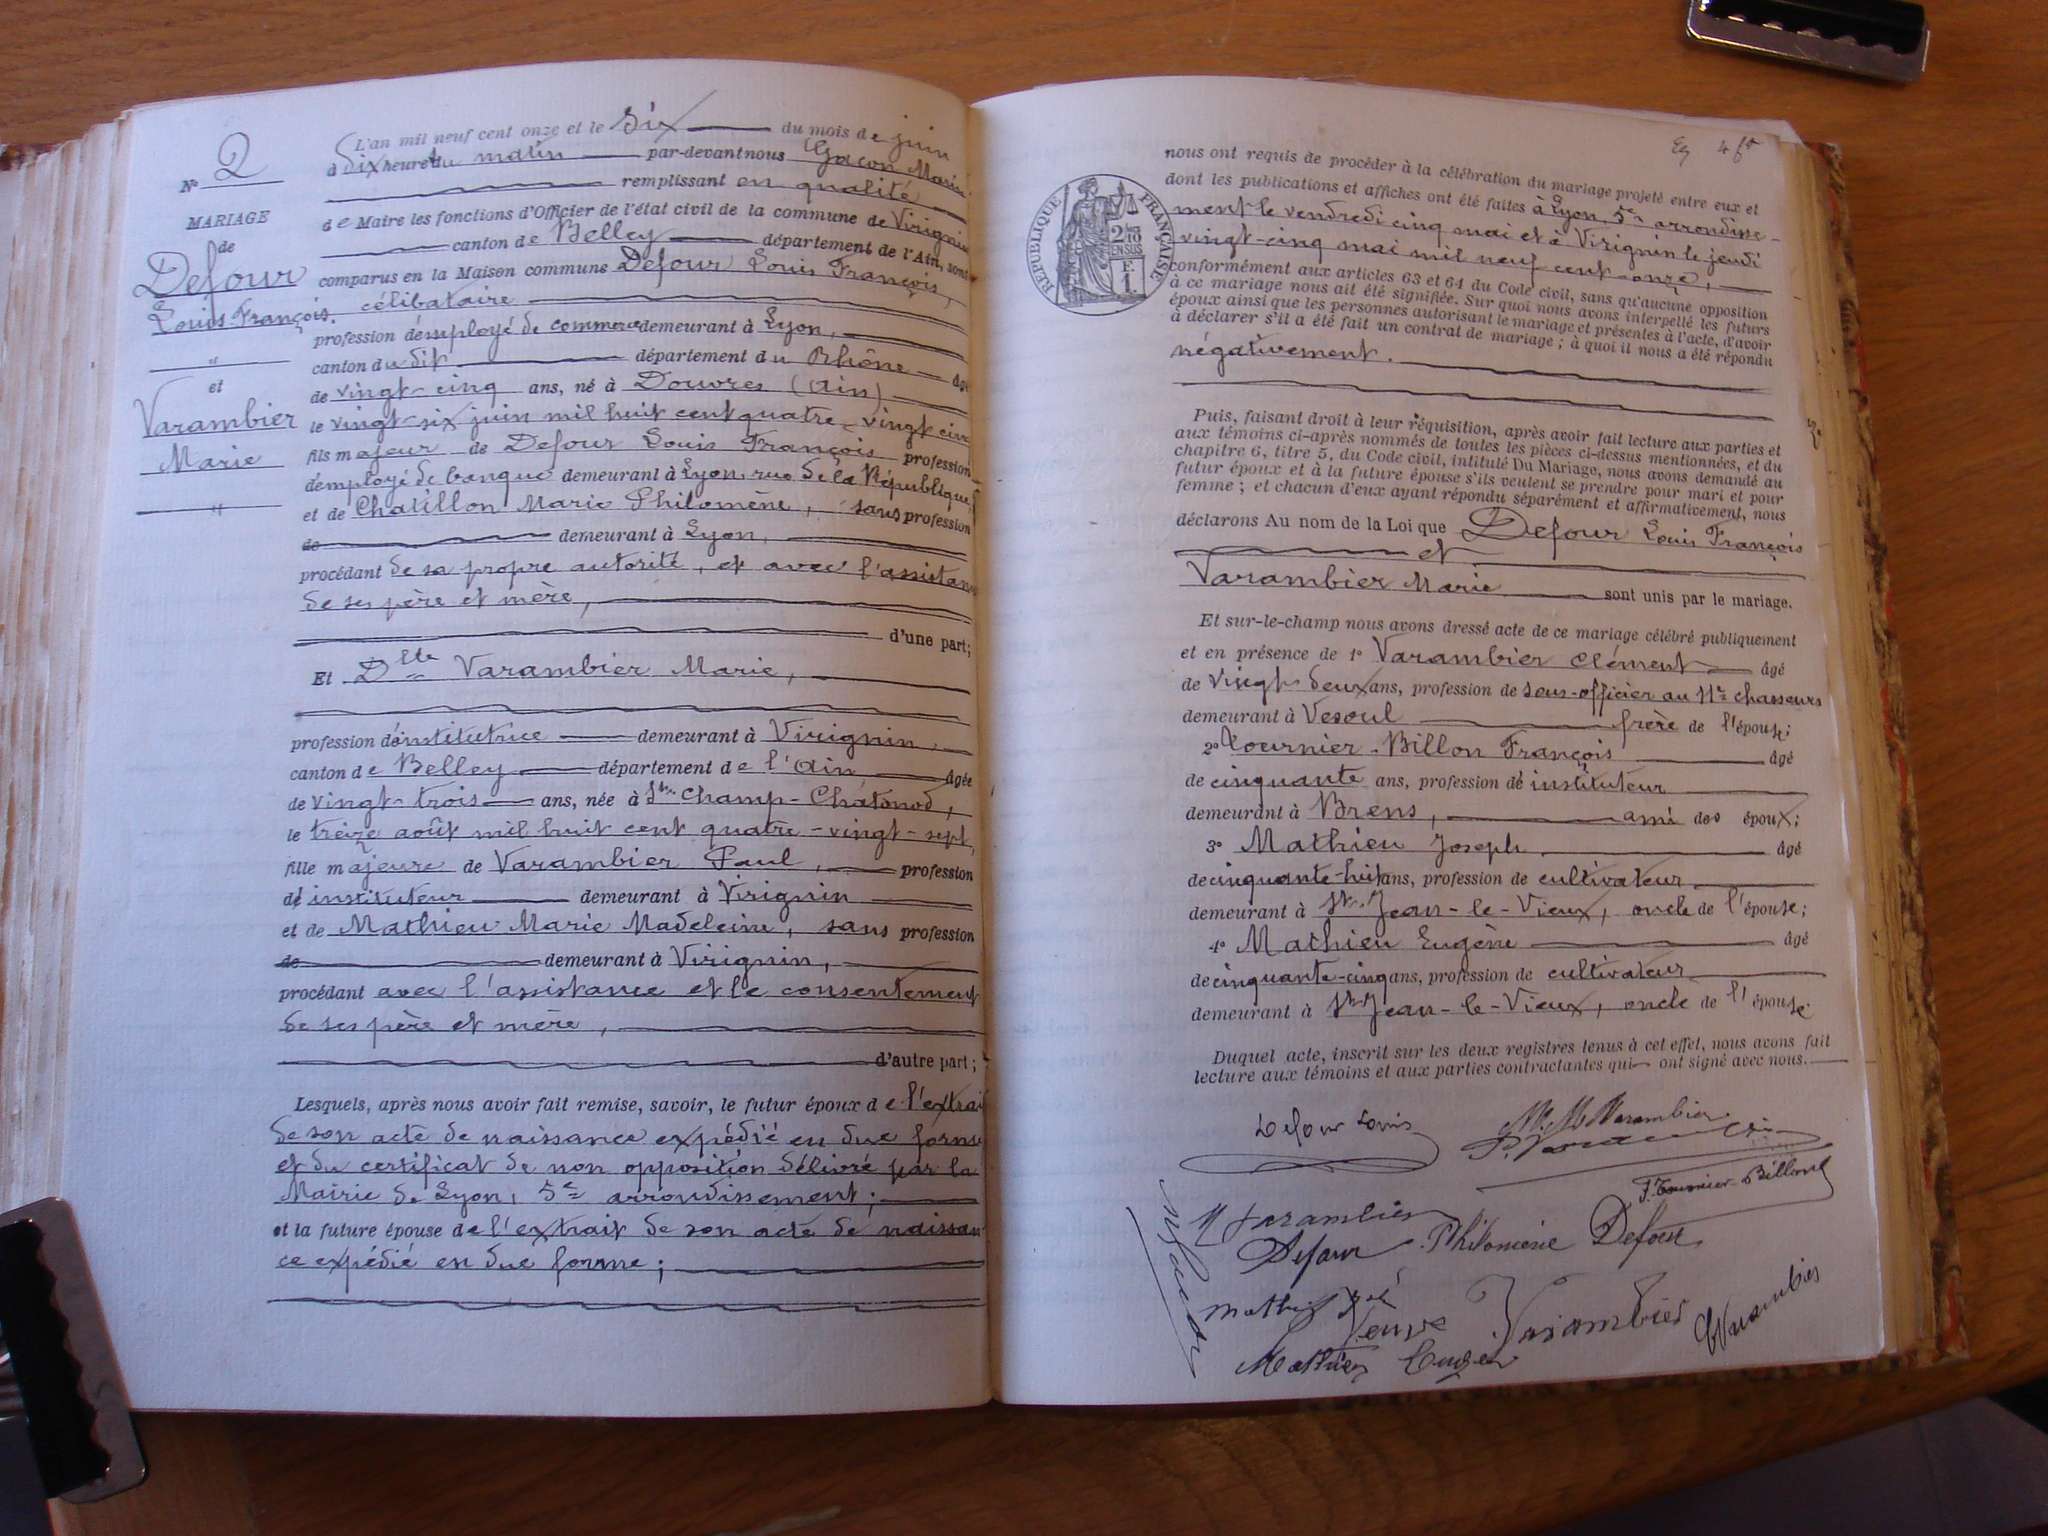 N° 2
MARIAGE
de
Defour
Louis François.
"
et
Varambier
Marie
"
L'an mil neuf cent onze et le Six du mois de juin
à dix heures du matin par-devant nous Gacon Marin
remplissant en qualité
de Maire les fonctions d'Officier de l'état civil de la commune de Virignin
canton de Belley département de l'Ain, sont
comparus en la Maison commune Defour Louis François,
célibataire
profession d'employé de commerce demeurant à Lyon,
canton du dit département du Rhône âgé
de vingt-cinq ans, né à Douvres (Ain)
le vingt-six juin mil huit cent quatre-vingt cinq
fils majeur de Defour Louis François profession
d'employé de banque demeurant à Lyon rue de la République,
et de Chatillon Marie Philomène, sans profession
de demeurant à Lyon,
procédant de sa propre autorité, et avec l'assistance
de ses père et mère,
d'une part;
Et Dlle Varambier Marie,
profession d'institutrice demeurant à Virignin,
canton de Belley département de l'Ain âgée
de vingt-trois ans, née à St Champ-Chatonod,
le treize août mil huit cent quatre-vingt-sept,
fille majeure de Varambier Paul, profession
d'instituteur demeurant à Virignin
et de Mathieu Marie Madeleine, sans profession
de demeurant à Virignin,
procédant avec l'assistance et le consentement
de ses père et mère,
d'autre part;
Lesquels, après nous avoir fait remise, savoir, le futur époux de l'extrait
de son acte de naissance expédié en due forme
et du certificat de non opposition délivré par la
Mairie de Lyon, 5e arrondissement;
et la future épouse de l'extrait de son acte de naissan
ce expédié en due forme;
RÉPUBLIQUE FRANÇAISE
2/10 EN SUS
F. 1
nous ont requis de procéder à la célébration du mariage projeté entre eux et
dont les publications et affiches ont été faites à Lyon, 5e arrondisse-
ment le vendredi cinq mai et à Virignin le jeudi
vingt-cinq mai mil neuf cent onze,
conformément aux articles 63 et 64 du Code civil, sans qu'aucune opposition
à ce mariage nous ait été signifiée. Sur quoi nous avons interpellé les futurs
époux ainsi que les personnes autorisant le mariage et présentes à l'acte, d'avoir
à déclarer s'il a été fait un contrat de mariage; à quoi il nous a été répondu
négativement.
Puis, faisant droit à leur réquisition, après avoir fait lecture aux parties et
aux témoins ci-après nommés de toutes les pièces ci-dessus mentionnées, et du
chapitre 6, titre 5, du Code civil, intitulé Du Mariage, nous avons demandé au
futur époux et à la future épouse s'ils veulent se prendre pour mari et pour
femme; et chacun d'eux ayant répondu séparément et affirmativement, nous
déclarons Au nom de la Loi que Defour Louis François
et
Varambier Marie sont unis par le mariage.
Et sur-le-champ nous avons dressé acte de ce mariage célébré publiquement
et en présence de 1° Varambier Clément âgé
de vingt-deux ans, profession de sous-officier au 11e chasseurs
demeurant à Vesoul frère de l'épouse;
2° Tournier-Billon François âgé
de cinquante ans, profession d'instituteur
demeurant à Brens, ami des époux;
3° Mathieu Joseph âgé
de cinquante-huit ans, profession de cultivateur
demeurant à St-Jean-le-Vieux, oncle de l'épouse;
4° Mathieu Eugène âgé
de cinquante-cinq ans, profession de cultivateur
demeurant à St-Jean-le-Vieux, oncle de l'épouse.
Duquel acte, inscrit sur les deux registres tenus à cet effet, nous avons fait
lecture aux témoins et aux parties contractantes qui ont signé avec nous.
Defour Louis
M. Varambier
F. Tournier-Billon
M Varambier
Defour Philomène Defour
Veuve Varambier
Varambier
Mathieu Eugène